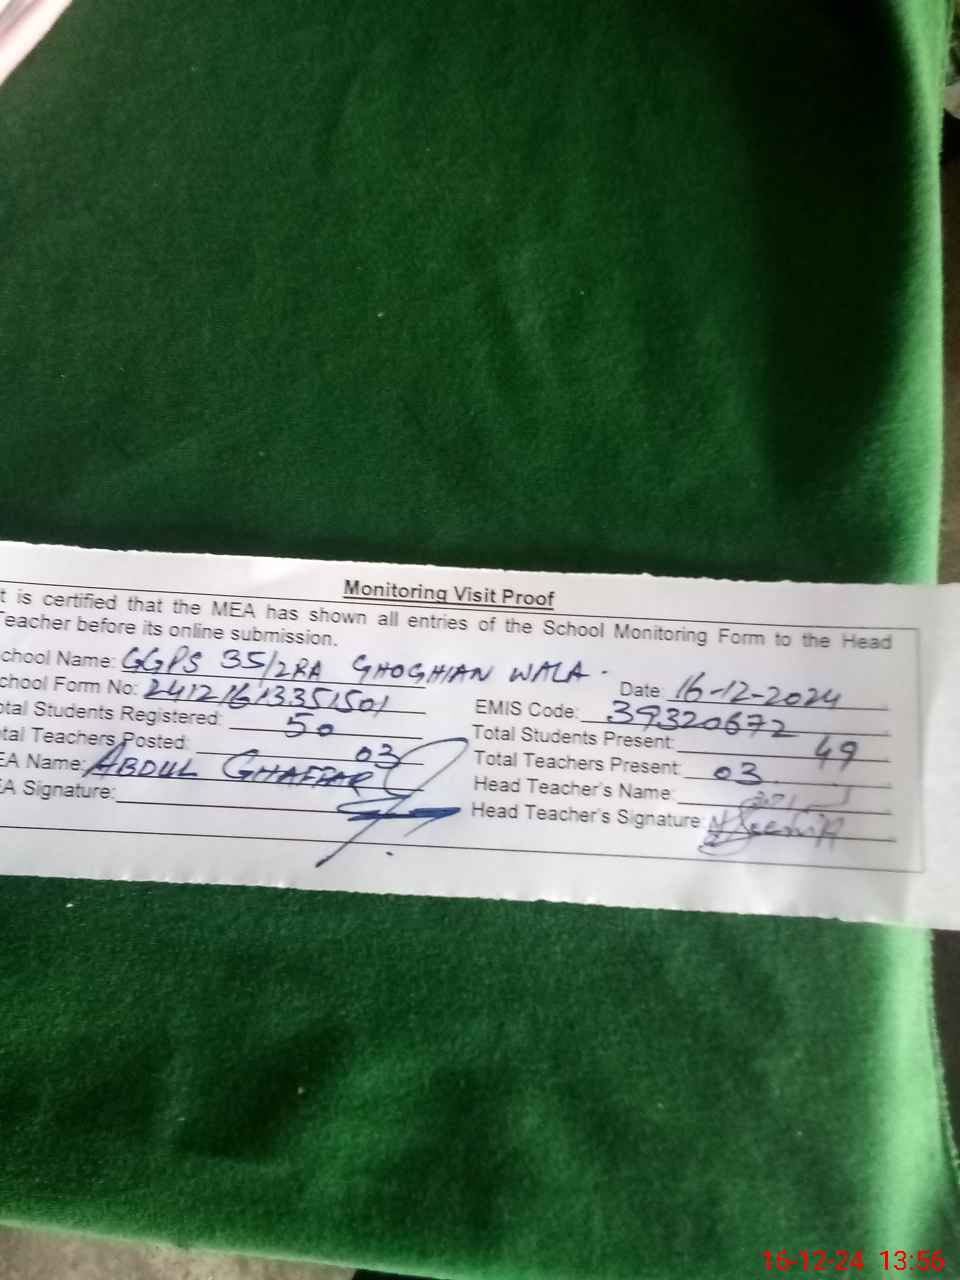 Monitoring Visit Proof
t is certified that the MEA has shown all entries of the School Monitoring Form to the Head
Teacher before its online submission.
chool Name: GGPS 35/2RA GHOGHIAN WALA.
Date: 16-12-2024
chool Form No: 24121613351501
EMIS Code: 39320672
otal Students Registered: 50
Total Students Present: 49
tal Teachers Posted: 03
Total Teachers Present: 03
EA Name: ABDUL GHAFFAR
Head Teacher's Name:
A Signature:
Head Teacher's Signature
16-12-24 13:56